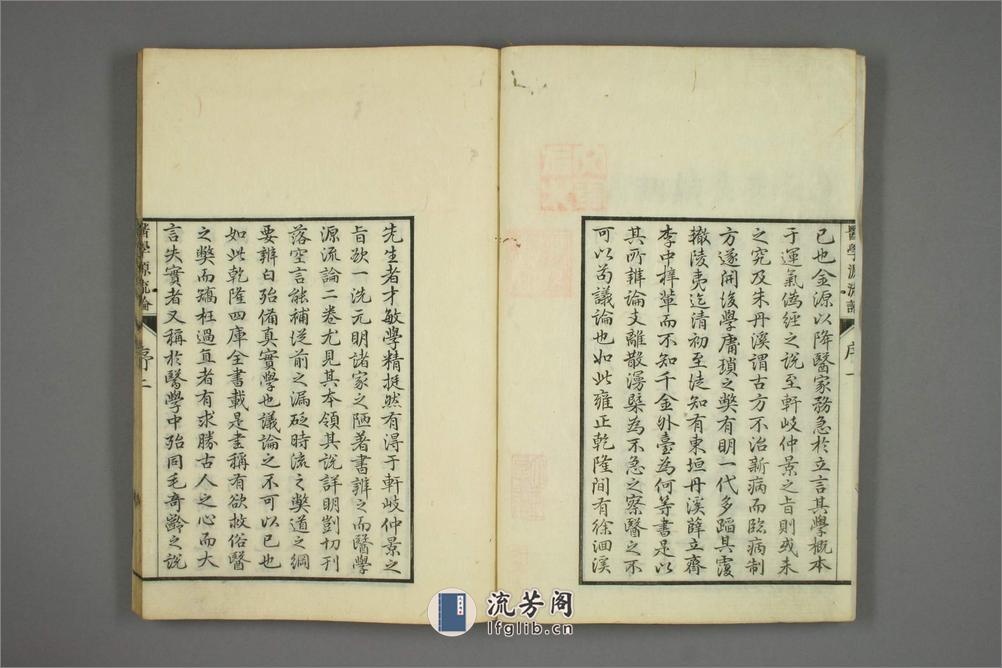 已也金源以降醫家務急於立言其學概本
于運氣僞經之說至軒岐仲景之旨則或未
之究及朱丹溪謂古方不治新病而臨病制
方遂開後學庸瑣之獘有明一代多蹈其覆
轍陵夷迄清初至徒知有東垣丹溪薛立齋
李中梓輩而不知千金外臺為何等書是以
其所辨論支離散漫槩為不急之察醫之不
可以苟議論也如此雍正乾隆間有徐洄溪
醫學源流論
序一
先生者才敏學精挺然有得于軒岐仲景之
旨欲一洗元明諸家之陋著書辨之而醫學
源流論二卷尤見其本領其說詳明剴切刊
落空言能補從前之漏砭時流之獘道之綱
要辨白殆備真實學也議論之不可以已也
如此乾隆四庫全書載是書稱有欲救俗醫
之獘而矯枉過直者有求勝古人之心而大
言失實者又稱於醫學中殆同毛奇齡之說
醫學源流論
序二
流芳阁
lfglib.cn